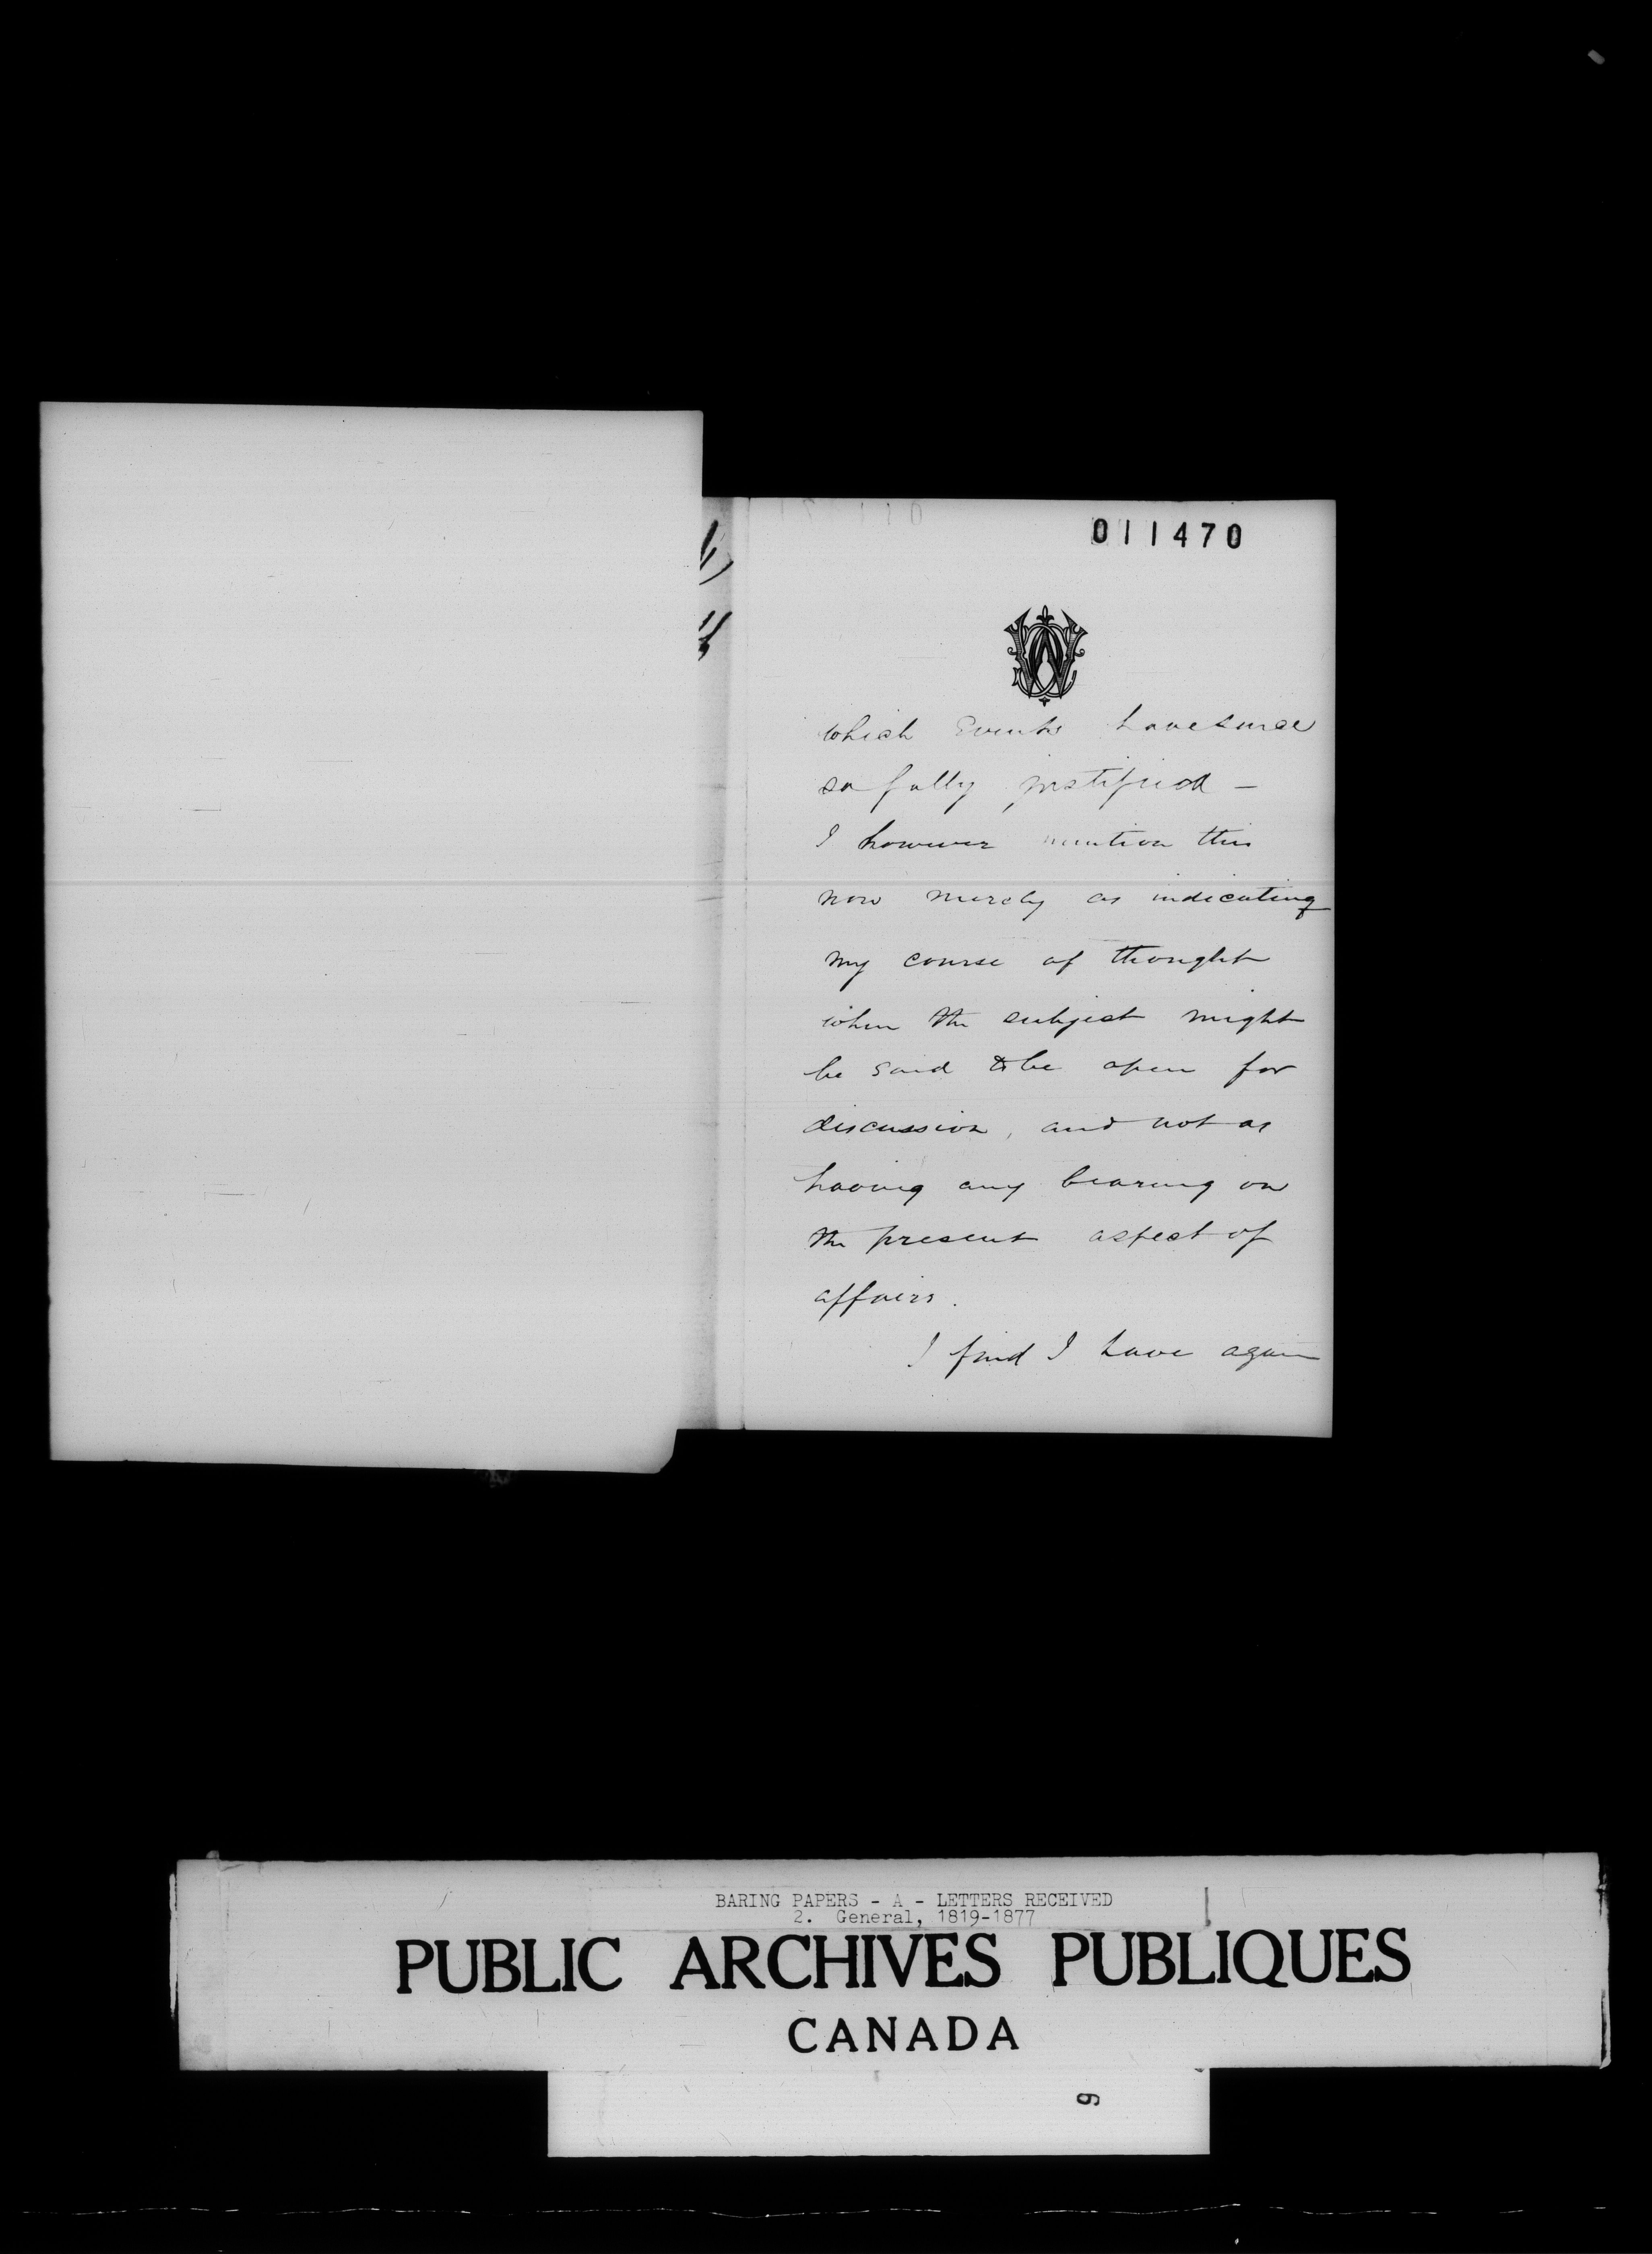 011470
which Events have since
so fully justified —
I however mention this
now merely as indicating
my course of thought
when the subject might
be said to be open for
discussion, and not as
having any bearing on
the present aspect of
affairs.
I find I have again
BARING PAPERS - A - LETTERS RECEIVED
2. General, 1819-1877
PUBLIC ARCHIVES PUBLIQUES
CANADA
9